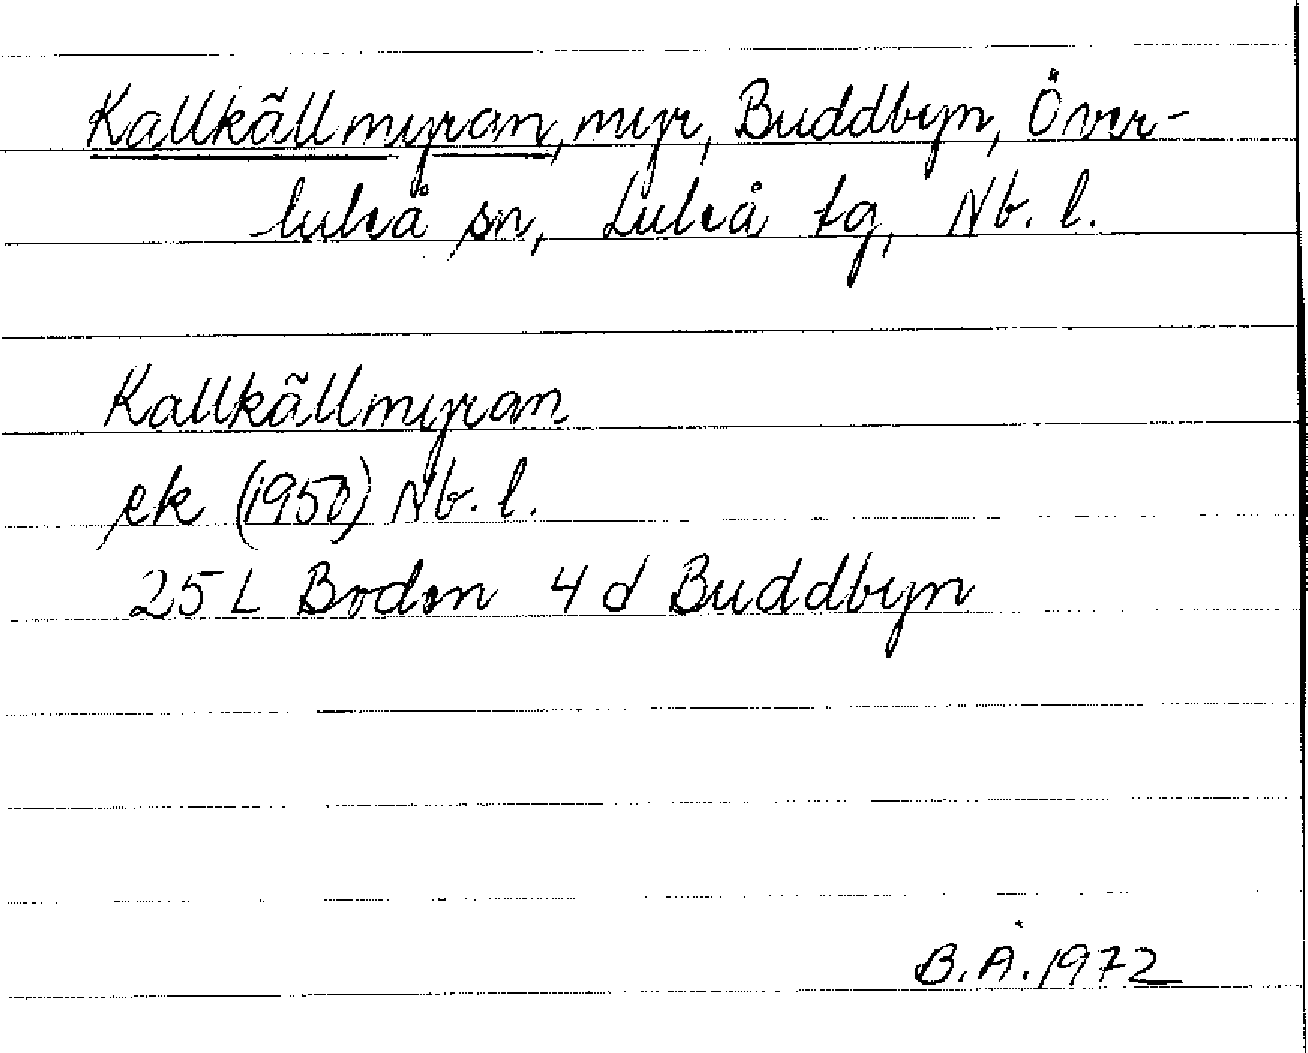 Kallkällmyran, myr, Buddbyn, Över-
luleå sn, Luleå tg, Nb. l.
Kallkällmyran
ek (1950) Nb. l.
25 L Boden 4 d Buddbyn
B.Å.1972